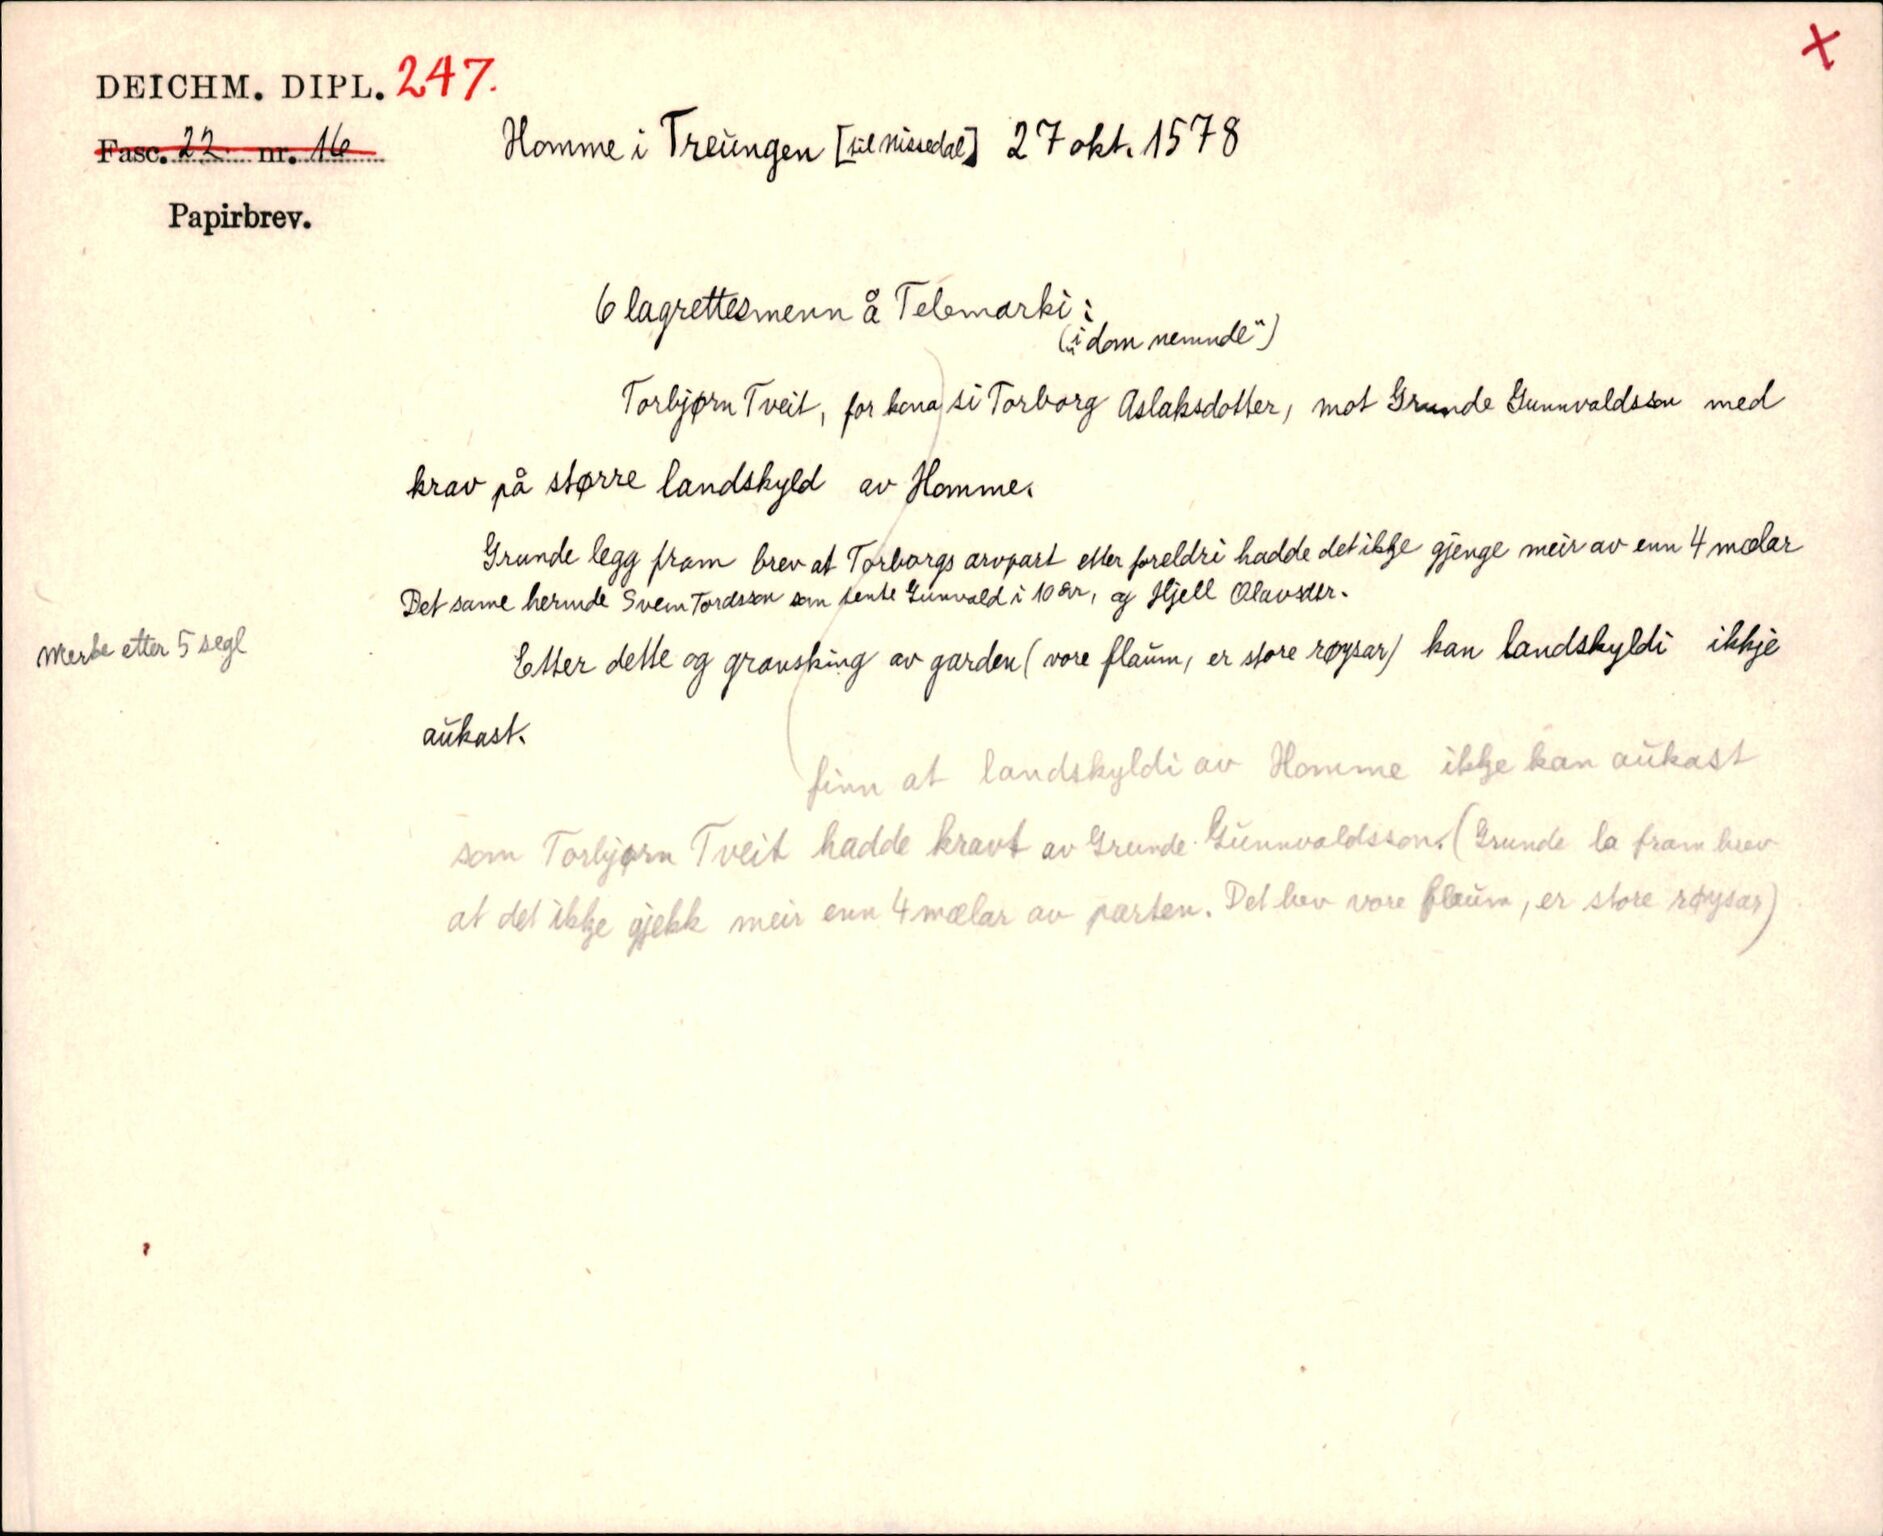 DEICHM. DIPL. 247.
Fasc. 22 nr. 16
Papirbrev.
Homme i Treungen [til Nissedal] 27 okt. 1578
6 lagrettesmenn å Telemarki:
(„i dom nemnde“)
Torbjørn Tveit, for kona si Torborg Aslaksdotter, mot Grunde Gunnvaldsson med
krav på større landskyld av Homme.
Grunde legg fram brev at Torborgs arvpart etter foreldri hadde det ikkje gjenge meir av enn 4 mælar
Det same hermde Svein Tordsson som tente Gunnvald i 10 år, og Kjell Olavsdtr.
Merke etter 5 segl
Etter dette og gransking av garden (vore flaum, er store røysar) kan landskyldi ikkje
aukast.
finn at landskyldi av Homme ikkje kan aukast
som Torbjørn Tveit hadde kravt av Grunde Gunnvaldsson. (Grunde la fram brev
at det ikkje gjekk meir enn 4 mælar av parten. Det hev vore flaum, er store røysar)